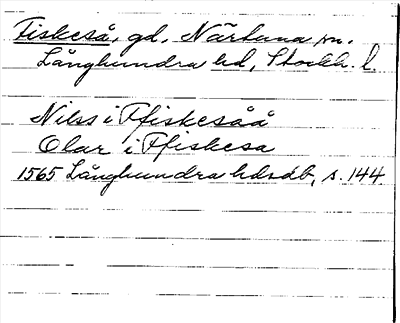 Fiskeså, gd, Närtuna sn.
Långhundra hd, Stockh. l.
Nils i Ffiskesåå
Olar i Ffiskesa
1565 Långhundra hdsdb, s. 144